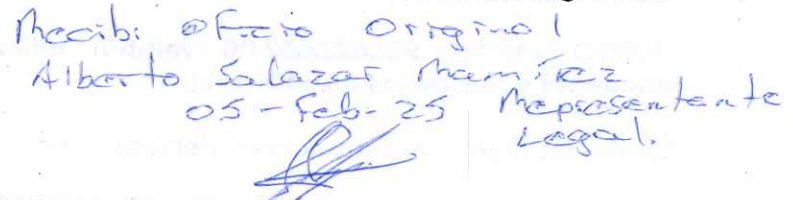 Recibi oficio Original
Alberto Salazar Ramírez
05-Feb-25 Representante
Legal.